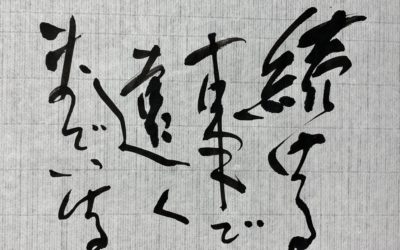 続ける
事で
遠く
までいける